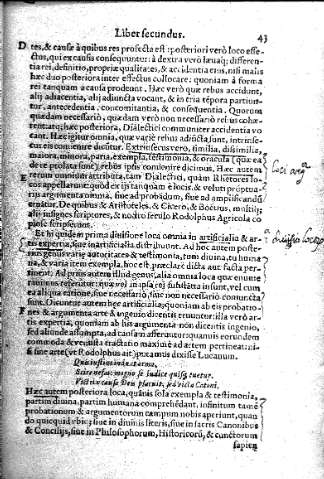 Liber secundus. 43
tes, & causæ à quibus res profecta est: posteriori verò loco effe-
ctus, qui ex causis consequuntur: à dextra verò
rei, definitio, propriæ qualitates, & accidentia eius, nisi malis
hæc duo posteriora inter effectus collocare: quoniam à forma
rei tanquam à causa prodeunt. Hæc verò quæ rebus accidunt,
alij adiacentia, alij adiuncta vocant, & in tria tempora partiun-
tur, antecedentia, concomitantia, & consequentia. Quorum
quædam necessariò, quædam verò non necessariò rei
atq; hæc posteriora, Dialectici communiter accidentia vo
cant. Hæc igitur omnia, quæ variè rebus adiuncta sunt, intrinse-
cus eis convenire dicuntur. Extrinsecus verò, similia, dissimilia,
maiora, minora, paria, exempla, testimonia, & oracula (quæ ea
sunt) rebus ipsis convenire dicimus. Hæc autem
rerum omnium attributa, tam Dialectici, quàm Rhetores lo-
cos appellarunt: quòd ex ijs tanquam è locis, & veluti
argumenta omnia, siue ad probandum, siue ad amplificandum
De quibus & Aristoteles, & Cicero, & Boëtius, multiq;
alij insignes scriptores, & nostro seculo Rodolphus Agricola co
piosè scripserunt.
Et hi quidem prima divisione loca omnia in artificialia & ar-
tis expertia, siue inartificialia distribuunt. Ad hoc autem poste-
rius genus variæ autoritates & testimonia, tum divina, tu huma
na, & varia item exempla, hoc est præclarè dicta aut facta per-
tinent. Ad prius autem illud genus, alia omnia loca quæ enume
rauimus referuntur: quæ vel in ipsa rei substantia insunt, vel cum
ea aliqua ratione, siue necessariò, siue non necessariò coniuncta
sunt. Dicuntur autem hæc artificialia; quoniam ab eis probatio-
nes & argumenta arte & ingenio dicentis eruuntur: illa verò ar-
tis expertia, quoniam ab his argumenta non dicentis ingenio,
sed aliunde assumpta, ad causam afferuntur: quamuis eorundem
commoda & venusta tractatio maximè ad artem pertineat: ni-
si sine arte (vt Rodolphus ait) putamus dixisse Lucanum.
Quis iustius induit arma,
Scire nefas: magno se iudice quisq; tuetur.
Victrix causa Deis placuit, sed victa Catoni.
Hæc autem posteriora loca, quàuis sola exempla & testimonia,
partim divina, partim humana comprehédant, infinitum tamẽ
probationum & argumentorum campum nobis aperiunt, quan
do quidquid vbiq; siue in divinis literis, siue in sacris Canonibus
& Concilijs, siue in Philosophorum, Historicorũ, & cunctorum
sapien